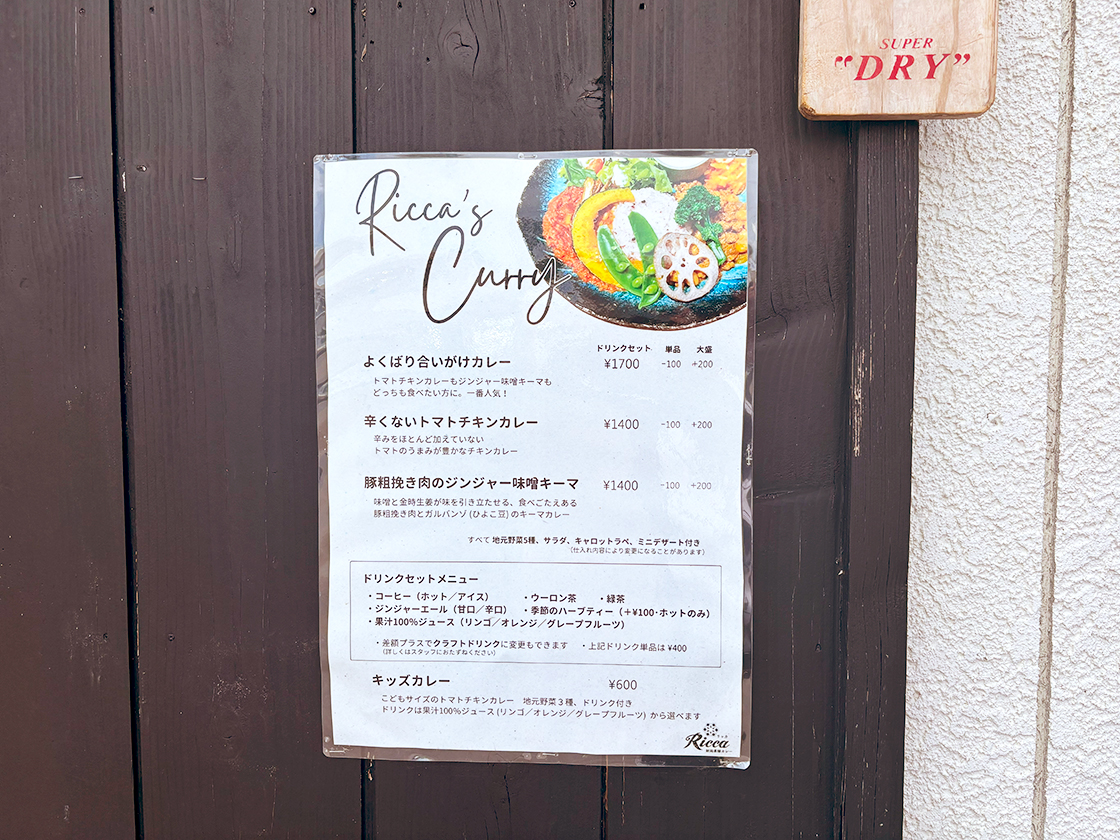 SUPER
“DRY”
Ricca's
Curry
ドリンクセット 単品 大盛
よくばり合いがけカレー ¥1700 -100 +200
トマトチキンカレーもジンジャー味噌キーマも
どっちも食べたい方に。一番人気！
辛くないトマトチキンカレー ¥1400 -100 +200
辛みをほとんど加えていない
トマトのうまみが豊かなチキンカレー
豚粗挽き肉のジンジャー味噌キーマ ¥1400 -100 +200
味噌と金時生姜が味を引き立たせる、食べごたえある
豚粗挽き肉とガルバンゾ (ひよこ豆) のキーマカレー
すべて 地元野菜5種、サラダ、キャロットラペ、ミニデザート付き
（仕入れ内容により変更になることがあります）
ドリンクセットメニュー
・コーヒー（ホット／アイス） ・ウーロン茶 ・緑茶
・ジンジャーエール（甘口／辛口） ・季節のハーブティー（＋¥100･ホットのみ）
・果汁100%ジュース（リンゴ／オレンジ／グレープフルーツ）
・差額プラスでクラフトドリンクに変更もできます ・上記ドリンク単品は ¥400
（詳しくはスタッフにおたずねください）
キッズカレー ¥600
こどもサイズのトマトチキンカレー 地元野菜３種、ドリンク付き
ドリンクは果汁100%ジュース (リンゴ／オレンジ／グレープフルーツ) から選べます
Ricca